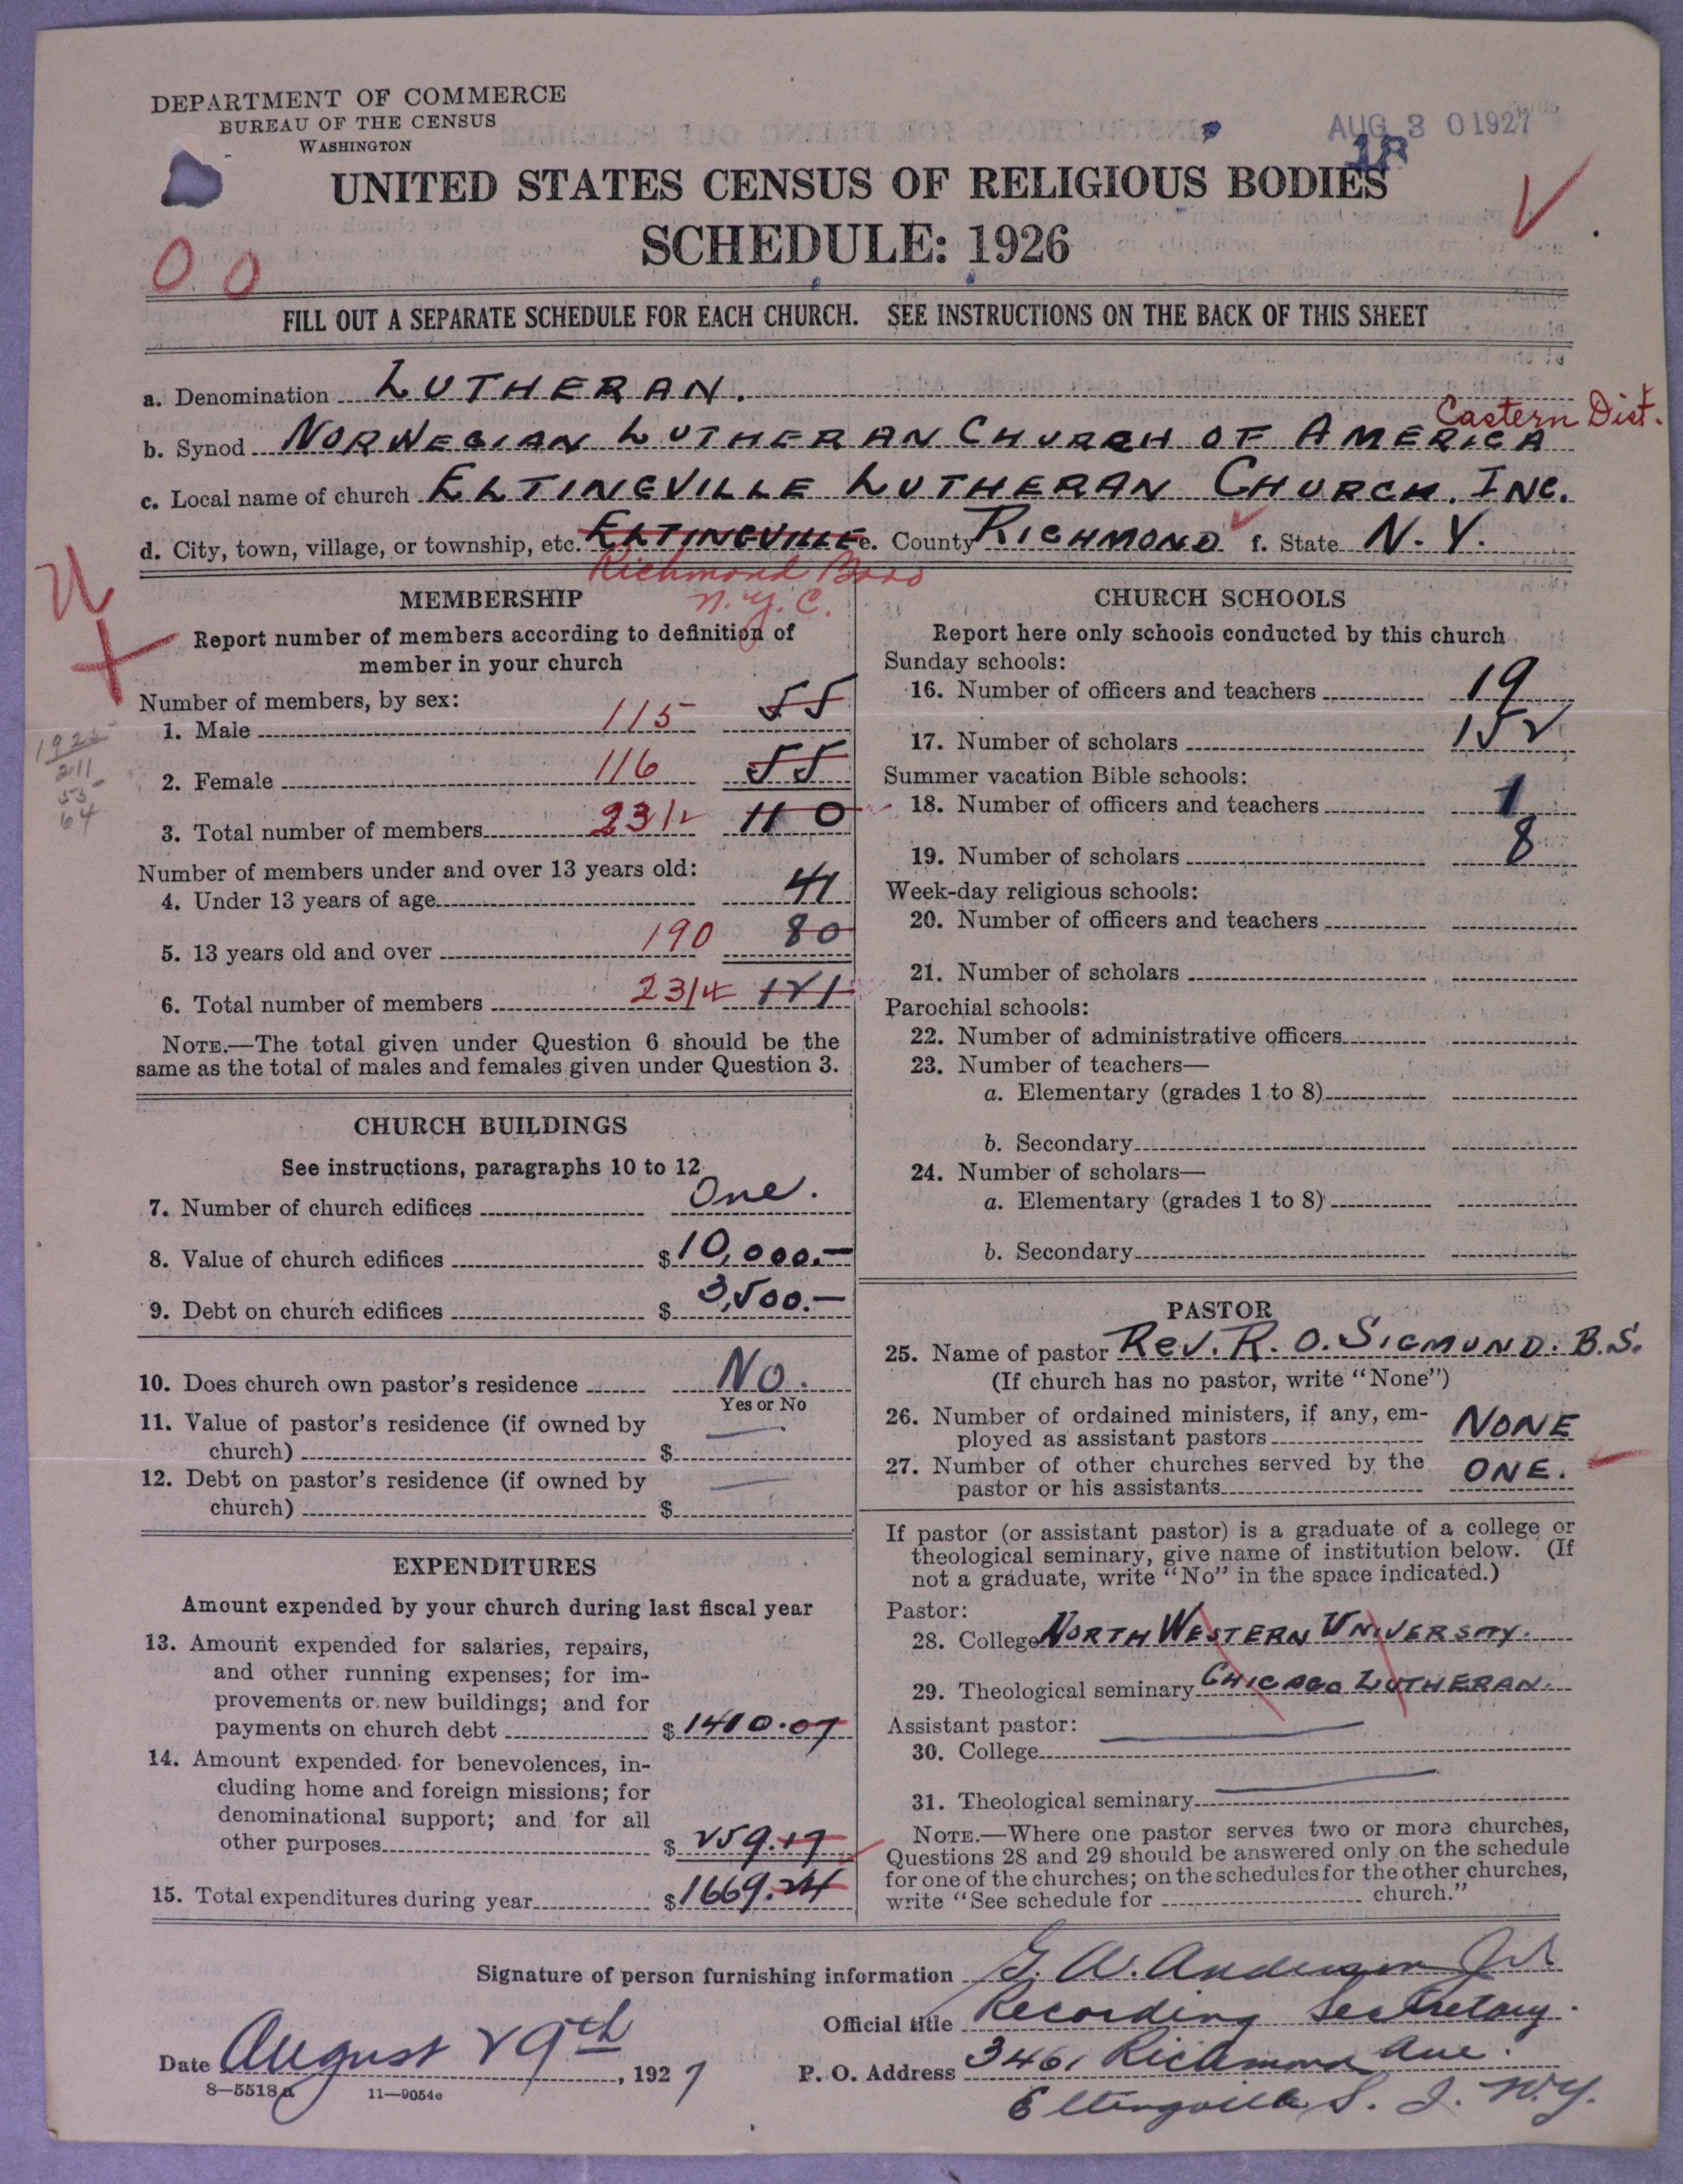 DEPARTMENT OF COMMERCE
BUREAU OF THE CENSUS
WASHINGTON
AUG 30 1927
UNITED STATES CENSUS OF RELIGIOUS BODIES
SCHEDULE: 1926
00
FILL OUT A SEPARATE SCHEDULE FOR EACH CHURCH. SEE INSTRUCTIONS ON THE BACK OF THIS SHEET
a. Denomination LUTHERAN.
Eastern Dist.
b. Synod NORWEGIAN LUTHERAN CHURCH OF AMERICA
c. Local name of church ELTINGVILLE LUTHERAN CHURCH. INC.
d. City, town, village, or township, etc. ELTINGVILLE e. County RICHMOND f. State N.Y.
Richmond Boro
N.Y.C.
MEMBERSHIP
Report number of members according to definition of
member in your church
Number of members, by sex:
1. Male 115 55
2. Female 116 55
3. Total number of members 231 110
211
55
64
Number of members under and over 13 years old:
4. Under 13 years of age 41
5. 13 years old and over 190 80
6. Total number of members 231 121
NOTE.—The total given under Question 6 should be the
same as the total of males and females given under Question 3.
CHURCH BUILDINGS
See instructions, paragraphs 10 to 12
7. Number of church edifices One.
8. Value of church edifices $10,000.—
9. Debt on church edifices $3,500.—
10. Does church own pastor's residence No.
Yes or No
11. Value of pastor's residence (if owned by
church) $ —
12. Debt on pastor's residence (if owned by
church) $ —
EXPENDITURES
Amount expended by your church during last fiscal year
13. Amount expended for salaries, repairs,
and other running expenses; for im-
provements or new buildings; and for
payments on church debt $1410.07
14. Amount expended for benevolences, in-
cluding home and foreign missions; for
denominational support; and for all
other purposes $259.17
15. Total expenditures during year $1669.24
CHURCH SCHOOLS
Report here only schools conducted by this church
Sunday schools:
16. Number of officers and teachers 19
17. Number of scholars 152
Summer vacation Bible schools:
18. Number of officers and teachers 1
19. Number of scholars 8
Week-day religious schools:
20. Number of officers and teachers
21. Number of scholars
Parochial schools:
22. Number of administrative officers
23. Number of teachers—
a. Elementary (grades 1 to 8)
b. Secondary
24. Number of scholars—
a. Elementary (grades 1 to 8)
b. Secondary
PASTOR
25. Name of pastor REV. R. O. SIGMUND. B.S.
(If church has no pastor, write "None")
26. Number of ordained ministers, if any, em-
ployed as assistant pastors NONE
27. Number of other churches served by the
pastor or his assistants ONE.
If pastor (or assistant pastor) is a graduate of a college or
theological seminary, give name of institution below. (If
not a graduate, write "No" in the space indicated.)
Pastor:
28. College NORTH WESTERN UNIVERSITY.
29. Theological seminary CHICAGO LUTHERAN.
Assistant pastor:
30. College
31. Theological seminary
NOTE.—Where one pastor serves two or more churches,
Questions 28 and 29 should be answered only on the schedule
for one of the churches; on the schedules for the other churches,
write "See schedule for church."
Signature of person furnishing information G. W. Anderson Jr
Official title Recording Secretary.
Date August 29th, 1927 P. O. Address 3461 Richmond Ave.
8—5518a 11—9054c
Eltingville S. I. N.Y.